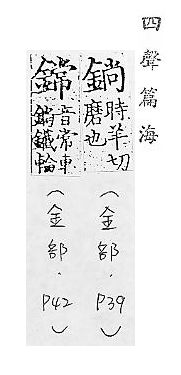 四聲篇海
鋿 時羊切磨也 （金部．P39）
鏛 音常車鏛鐵輪 （金部．P42）